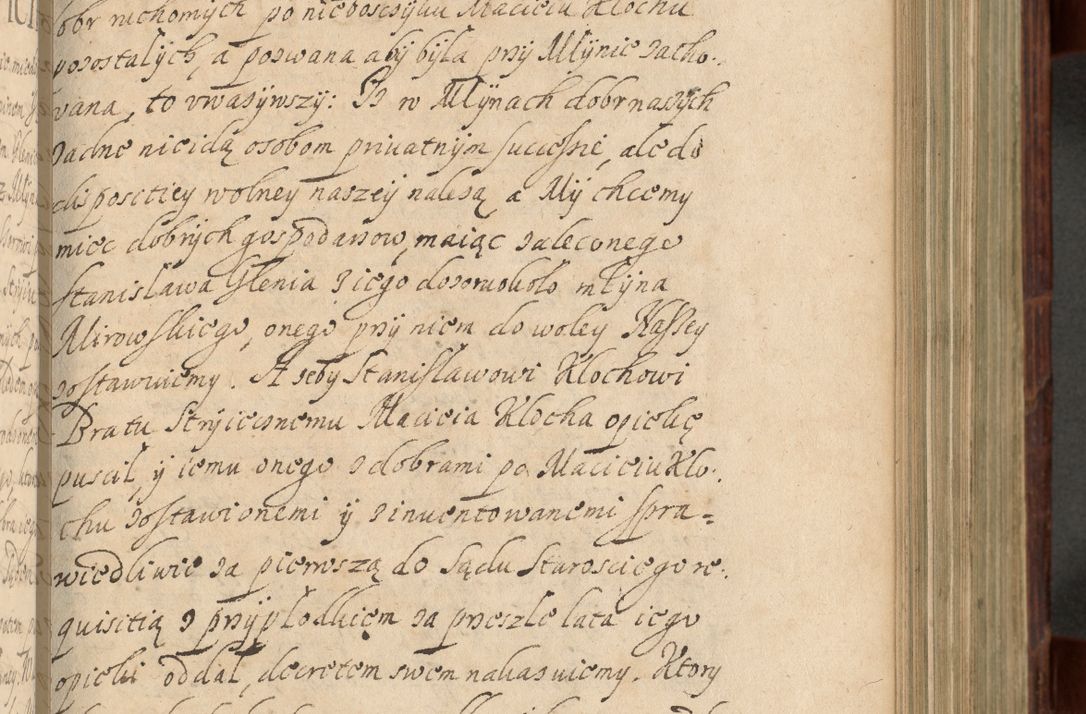 obr ruchomych po nieboscsyku Macieiu Klochu
posostałych, a poswana aby była przy Młynie sacho-
wana, to vwasywszy: Is w Młynach dobr naszych
sadne nieidą osobom priuatnym successie, ale do
disposcitiey wolney naszey nalesą a My chcemy
miec dobrych gospodarsow, maiąc saleconego
Stanisława Glenia s iego dosoru około młyna
Mirowskiego, onego przy niem do woley Nassey
sostawuiemy. A seby Stanisławowi Klochowi
Bratu Stryiecsnemu Macieia Klocha opiekę
puscił, y iemu onego s dobrami po Macieiu Klo-
chu sostawionemi y sinuentowanemi spra=
wiedliwie sa pierwszą do Sądu Starosciego re-
quisitią s przypłodkiem sa przeszłe lata iego
opieki oddał, decretem swem nakasuiemy. Ktory